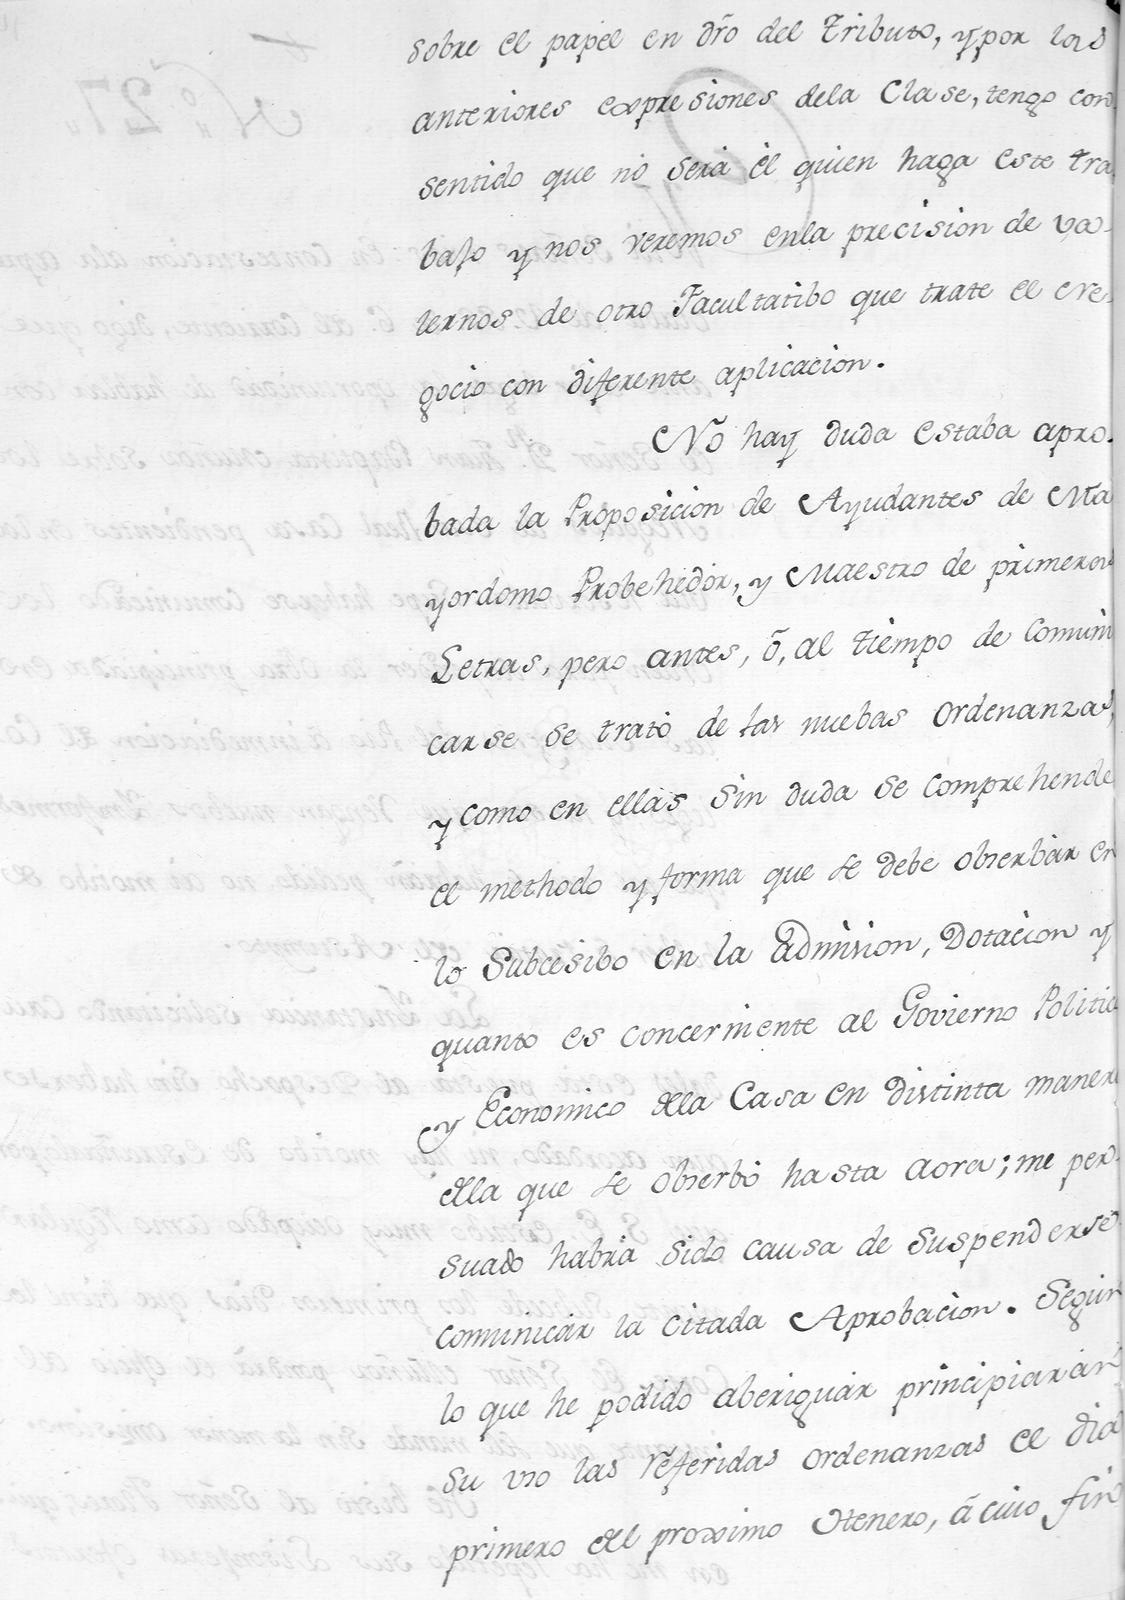 sobre el papel en dro del Tributo, y por las
anteriores expresiones dela Clase, tengo con
sentido que no será él quien haga este tra
bajo y nos veremos enla precision de va
lernos de otro Facultatibo que trate el ne
gocio con diferente aplicacion.
No hay duda estaba apro
bada la Proposicion de Ayudantes de Ma
yordomo Probehedor, y Maestro de primeras
Letras, pero antes, ó, al tiempo de comuni
carse se trató de las nuebas ordenanzas,
y como en ellas sin duda se comprehende
el methodo y forma que se debe obserbar en
lo subcesibo en la admision, Dotacion y
quanto es concerniente al Govierno Politico
y Economico della Casa en distinta manera
della que se obserbó hasta aora; me per
suado habria sido causa de suspenderse
comunicar la citada Aprobacion. Segun
lo que he podido aberiguar principiarán
su uso las referidas ordenanzas el dia
primero del proximo Henero, á cuio fin